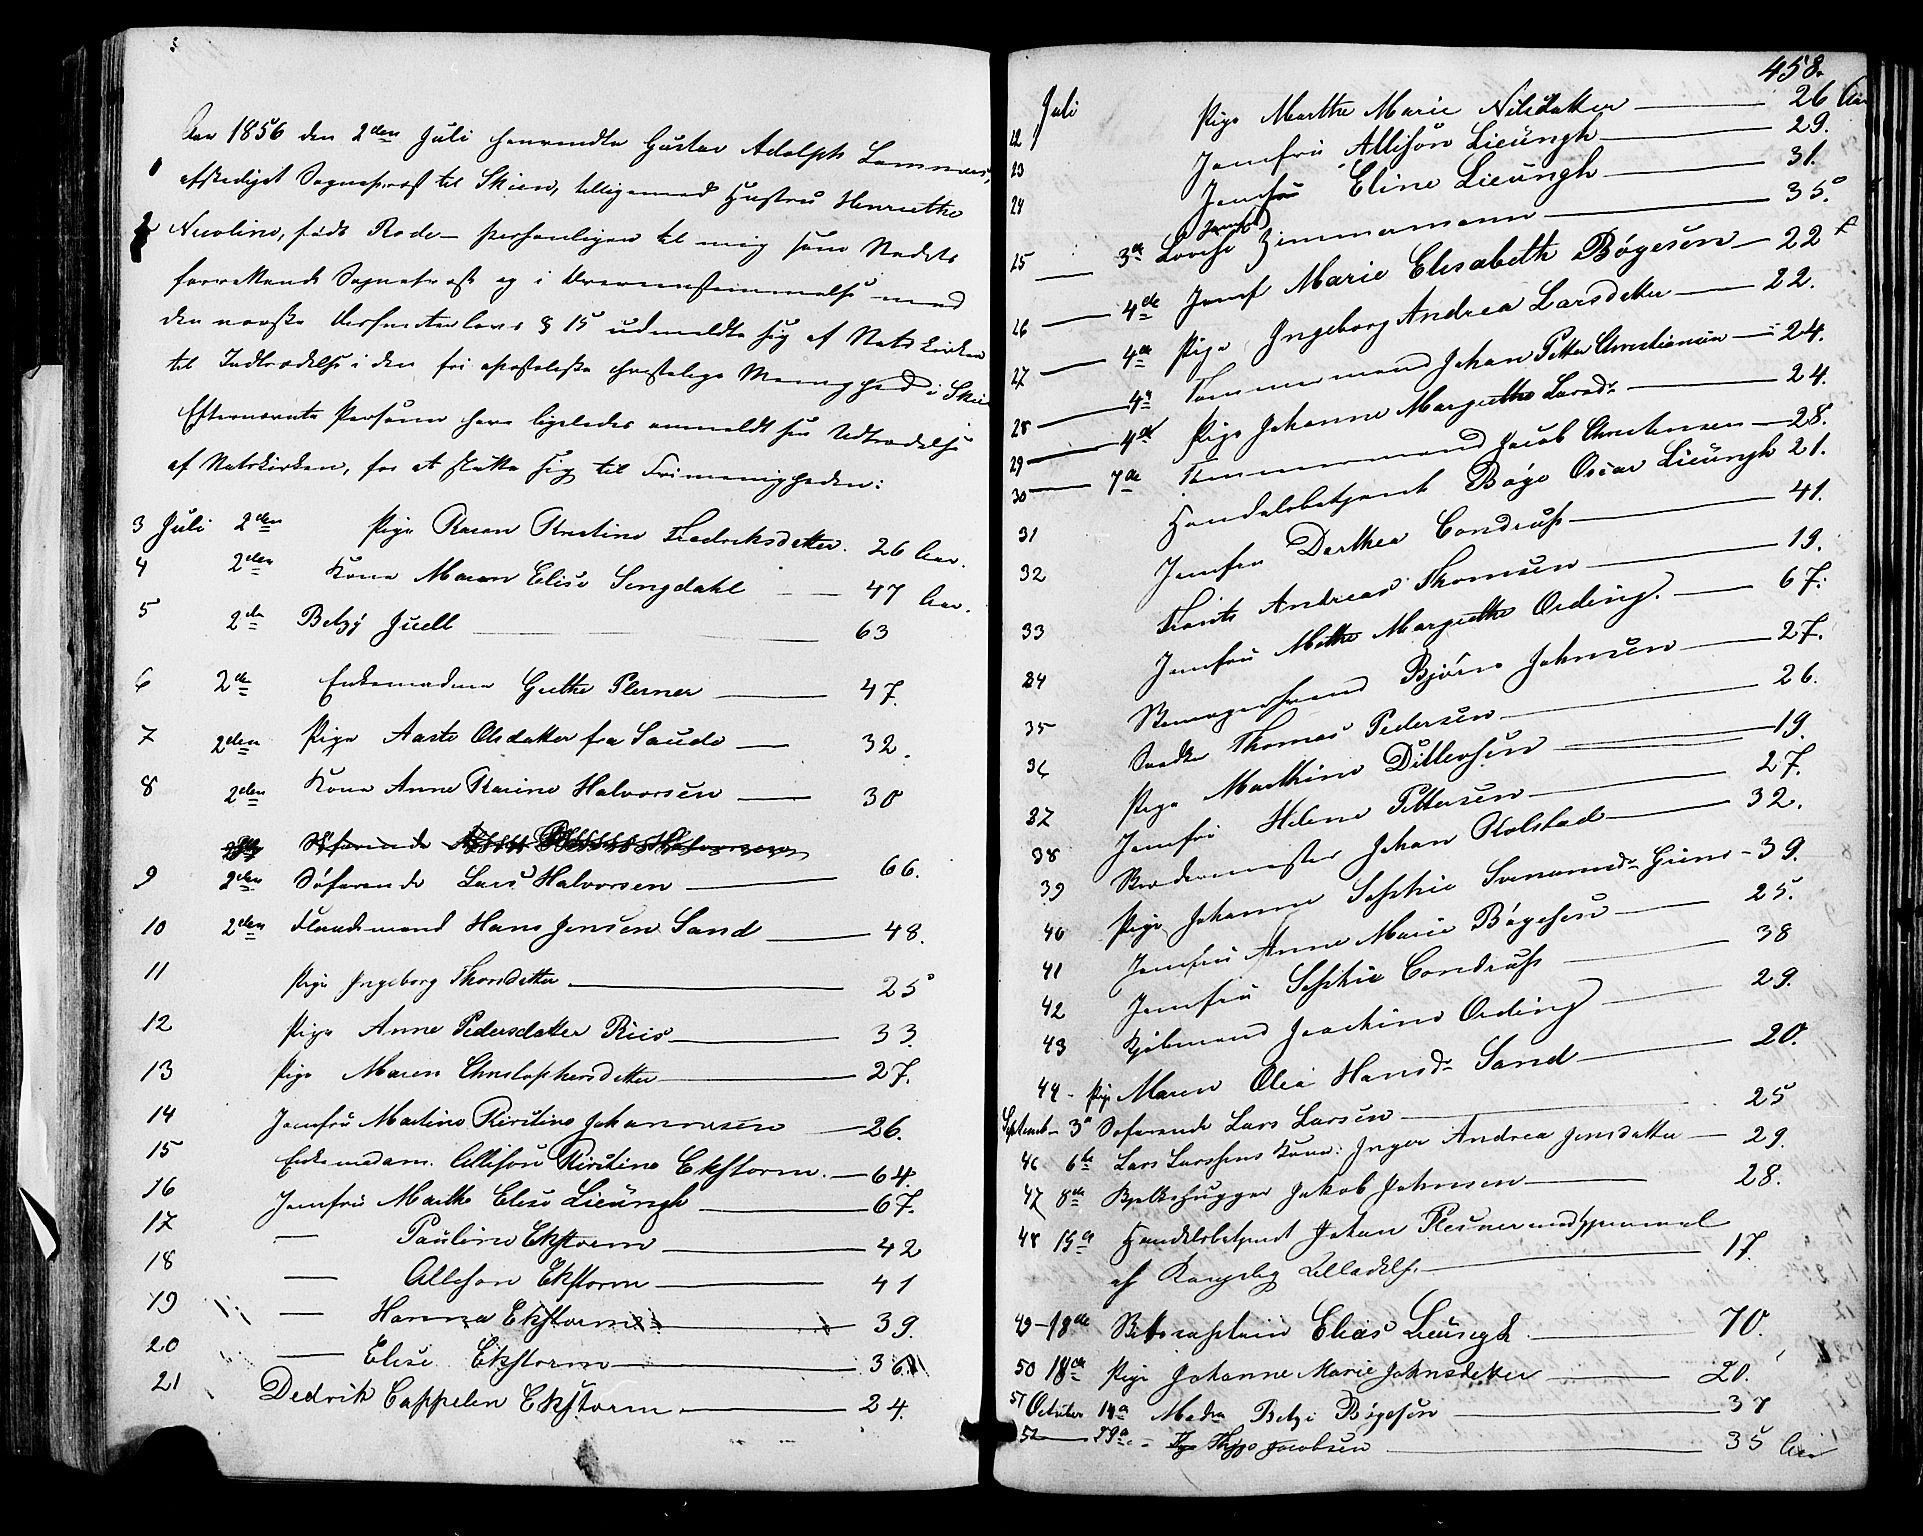 Aar 1856 den 2den Juli henvendte Gustav Adolph Lammers,
1 afskediget Sognepræst til Skien, tilligemed Hustru Henriette
2 Nicoline, født Rode - personligen til mig som Stedets
forrettende Sognepræst og i Overensstemmelse med
den norske Dissenterlovs § 15 udmeldte sig af Statskirken
til Indtrædelse i den fri apostoliske christelige Menighed i Skien
Efternævnte Personer have ligeledes anmeldt sin Udtrædelse
af Statskirken, for at slutte sig til Frimenigheden:
3 Juli 2den Pige Karen Kirstine Fredriksdatter. 26 Aar.
4 2den Kone Maren Elise Lingdahl — 47 Aar.
5 2de Betzy Juell — 63
6 2de Enkemadame Grethe Plesner — 47.
7 2den Pige Aaste Olsdatter fra Saude — 32.
8 2den Kone Anne Karine Halvorsen — 30
2den Söfarende
9 2den Söfarende Lars Halvorsen — 66.
10 2den Flaademand Hans Jensen Sand — 48.
11 Pige Ingeborg Thorsdatter — 25
12 Pige Anne Pedersdatter Riis — 33.
13 Pige Maren Christophersdatter — 27.
14 Jomfru Martine Kirstine Johannesen — 26.
15 Enkemadam. Allison Kirstine Ekstorm. — 64.
16 Jomfru Marthe Elise Lieungh — 67.
17 — Pauline Ekstorm — 42
18 — Allison Ekstorm — 41
19 — Hanna Ekstorm — 39.
20 — Elise Ekstorm — 36
21 Dedrik Cappelen Ekstorm — 24.
458.
22 Juli Pige Marthe Marie Nilsdatter — 26 Aar
23 Jomfru Allison Lieungh — 29.
24 Jomfru Eline Lieungh — 31.
25 — 3de Lovise Zimmermann — 35.
26 — 4de Jomf Marie Elisabeth Bøgesen — 22
27 — 4de Pige Ingeborg Andrea Larsdatter — 22.
28 — 4de Tømmermand Johan Petter Christiansen — 24.
29 — 4de Pige Johanne Margrethe Larsdr — 24.
30 — 7de Tømmermand Jacob Christensen — 28.
31 Handelsbetjent Bøge Oscar Lieungh 21.
32 Jomfru Dorthea Condrup — 41.
33 Frants Andreas Thomsen — 19.
34 Jomfru Mette Margrethe Ording. — 67.
35 Skomagersvend Bjørn Johnsen — 27.
36 Snedker Thomas Pedersen — 26.
37 Pige Marthine Ditlevsen — 19.
38 Jomfru Helene Pettersen — 27.
39 Skredermester Johan Kolstad — 32.
40 Pige Johanne Sophie Svenumsdr Griis — 39.
41 Jomfru Anne Marie Bøgesen — 25.
42 Jomfru Sophie Condrup — 38
43 Kjøbmand Joachim Ording — 29.
44 - Pige Maren Olea Hansdr Sand — 20.
Septemb — 3de Söfarende Lars Larsen — 25
46 6te Lars Larsens Kone: Inger Andrea Jensdatter — 29.
47 8de Bjelkehugger Jakob Johnsen — 28.
48 15de Handelsbetjent Johan Plesner med hjemmel
af Kongelig Tilladelse — 17.
49 — 18de Skibscaptein Elias Lieungh. — 70.
50 18de Pige Johanne Marie Johnsdatter — 20.
51 October 14de Madm Betzi Bøgesen — 37
52 — 29de — Jacobsen — 35 Aar